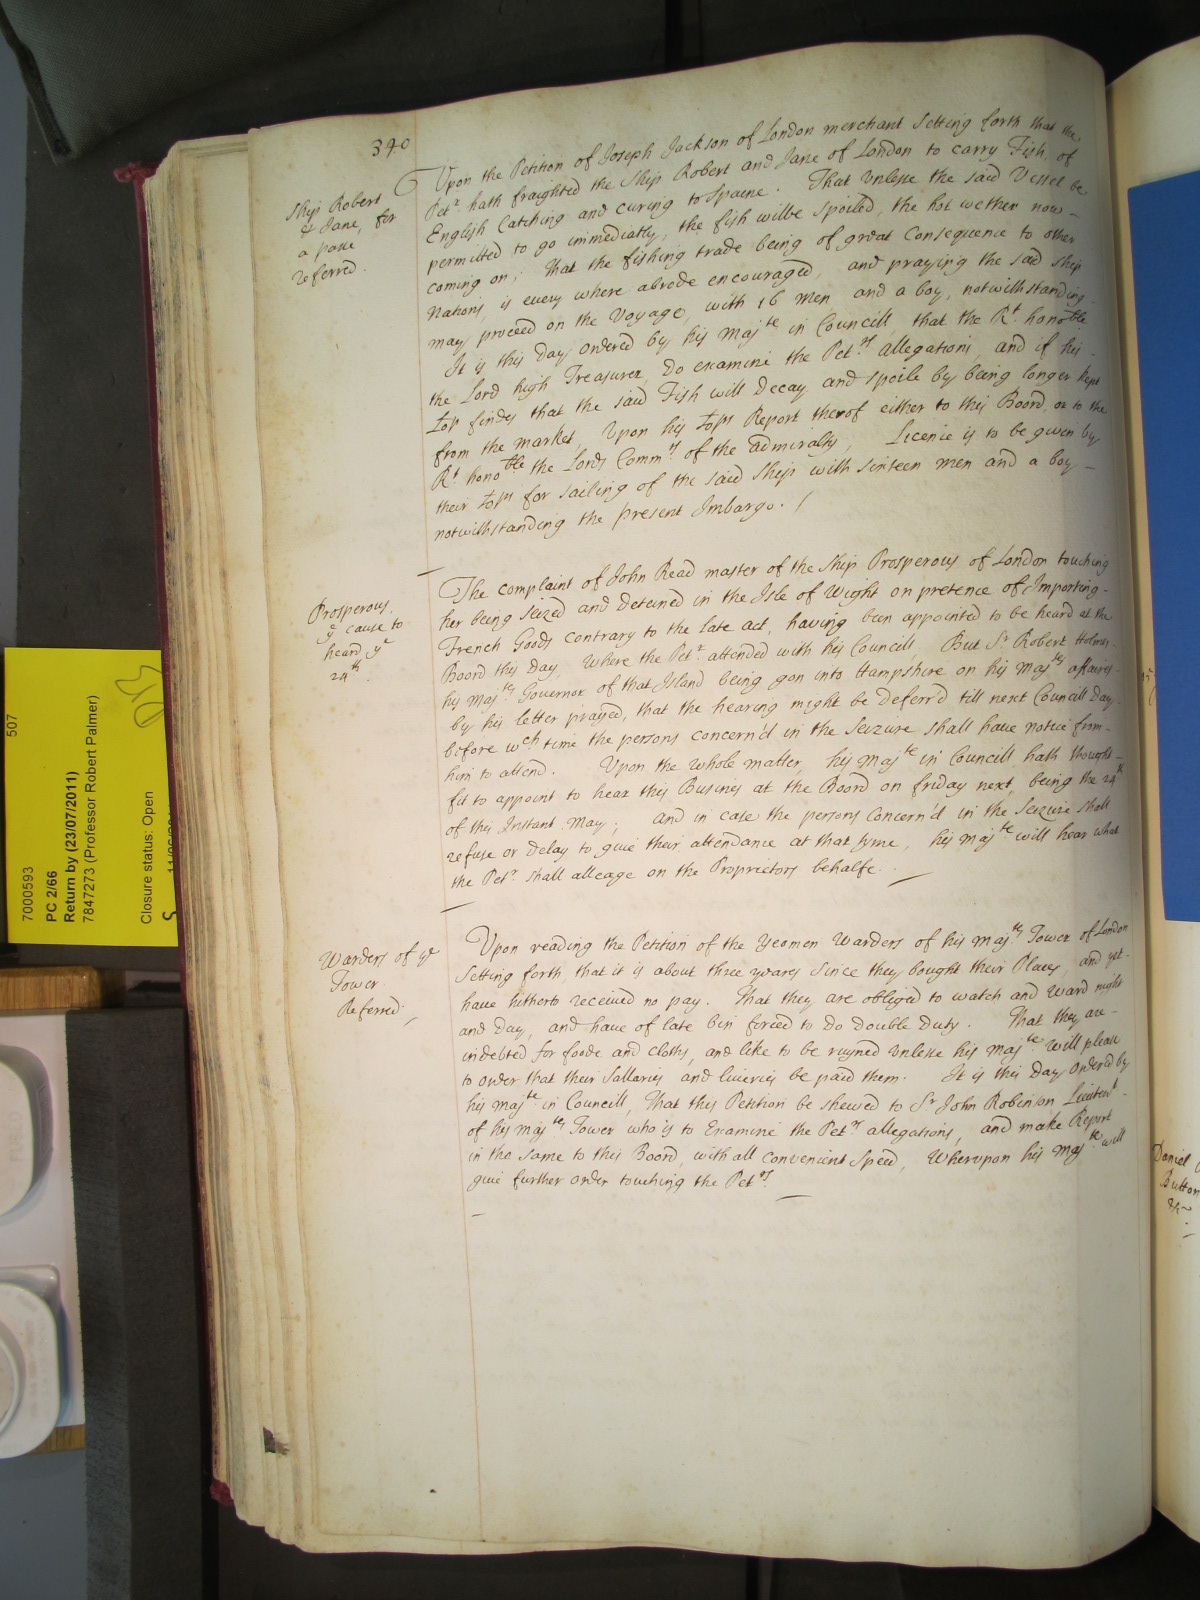 340
Ship Robert
& Jane, for
a passe
referred.
Upon the Petition of Joseph Jackson of London merchant setting forth that the
Petr. hath fraighted the Ship Robert and Jane of London to carry Fish, of
English Catching and curing to Spaine. That Unlesse the said Vessel be
permitted to go immediatly, the fish wilbe spoiled, the hot wether now -
coming on; That the fishing trade being of great Consequence to other
Nations, is every where abrode encouraged, and praying the said ship
may proceed on the Voyage, with 16 men and a boy, notwithstanding-
It is this day ordered by his Majte in Councill, that the Rt. honoble
the Lord high Treasurer, do examine the Petrs allegations, and if his -
Lop findes that the said Fish will Decay and spoile by being longer kept
from the market, Upon his Lops Report therof either to this Board, or to the
Rt honoble the Lords Commrs of the Admiralty, License is to be given by
their Lops for sailing of the said Ship with sixteen men and a boy -
notwithstanding the present Imbargo. /
Prosperous.
ye cause to
heard ye
24th.
The complaint of John Read master of the Ship Prosperous of London touching
her being seized and deteined in the Isle of Wight on pretence of Importing -
French Goods contrary to the late act, having been appointed to be heard at the
Board this Day, Where the Petr. attended with his Councill. But Sr Robert Holmes
his Majtes Governor of that Island being gon into Hampshire on his Majtes affaires-
by his letter prayed, that the hearing might be Deferr'd till next Councill Day,
before wch time the persons concern'd in the Seizure shall have notice from-
him to attend. Upon the whole matter, his Majte in Councill hath thought-
fit to appoint to hear this Busines at the Board on friday next, being the 24th
of this Instant May; and in case the persons Concern'd in the Seizure shall
refuse or delay to give their attendance at that tyme, his Majte will hear what
the Petr. shall alleage on the Proprietors behalfe.
Warders of ye
Tower.
Referred.
Upon reading the Petition of the Yeomen Warders of his Majtes Tower of London
setting forth, that it is about three yeares since they bought their Places, and yet-
have hitherto received no pay. That they are obliged to watch and Ward night
and Day, and have of late bin forced to do Double Duty. That they are -
indebted for foode and cloths, and like to be ruyned Unlesse his Majte will please
to order that their Sallaries and liveries be paid them. It is this Day Ordered by
his Majte in Councill, That this Petition be shewed to Sr John Robinson Lieutent -
of his Majtes Tower who is to Examine the Petrs allegations, and make Report
in the same to this Board, with all convenient Speed, Wherupon his Majte will
give further order touching the Petrs.
Daniel
Button
&c
507
7000593
PC 2/66
Return by (23/07/2011)
7847273 (Professor Robert Palmer)
Closure status: Open